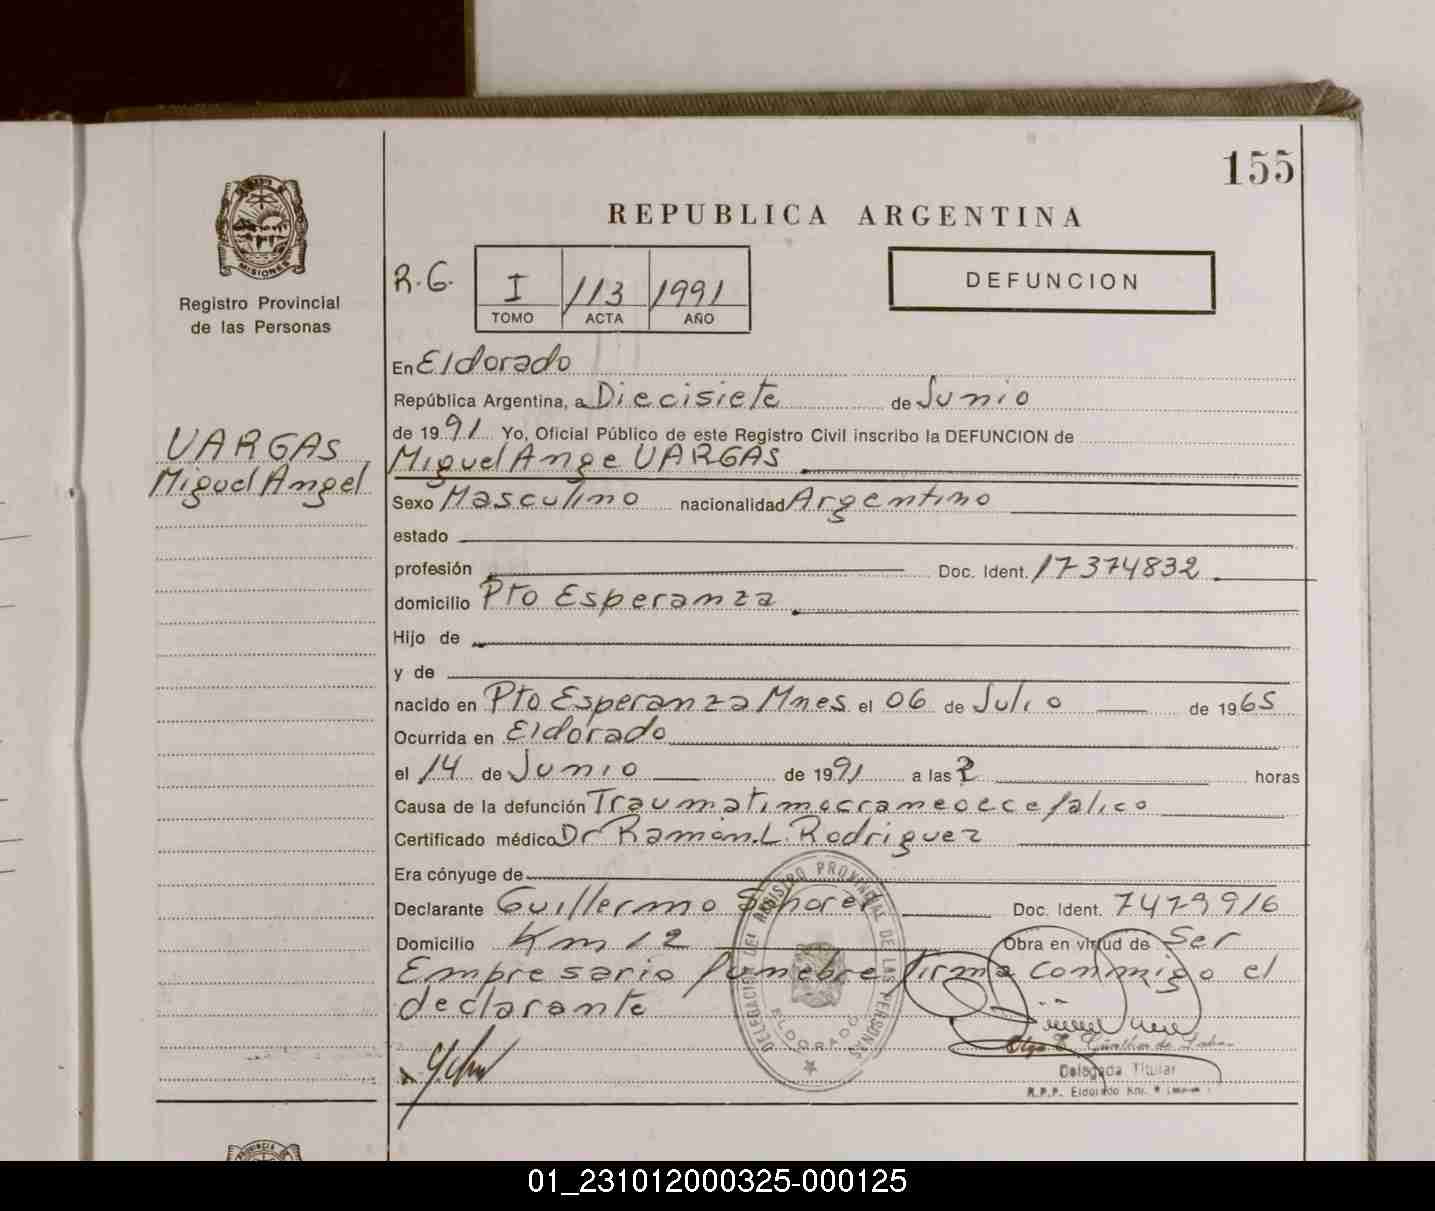 155
REPUBLICA ARGENTINA
MISIONES
Registro Provincial
de las Personas
R.G. I 113 1991
TOMO ACTA AÑO
DEFUNCION
VARGAS
Miguel Angel
En Eldorado
República Argentina, a Diecisiete de Junio
de 1991 Yo, Oficial Público de este Registro Civil inscribo la DEFUNCION de
Miguel Ange VARGAS
Sexo Masculino nacionalidad Argentino
estado
profesión Doc. Ident. 17374832
domicilio Pto Esperanza
Hijo de
y de
nacido en Pto Esperanza Mnes el 06 de Julio de 1965
Ocurrida en Eldorado
el 14 de Junio de 1991 a las 2 horas
Causa de la defunción
Certificado médico Dr Ramón.L.Rodriguez
Era cónyuge de
Declarante Guillermo Doc. Ident.
Domicilio Km 12 Obra en virtud de Ser
Empresario funebre firma conmigo el
declarante
DELEGACION DEL REGISTRO PROVINCIAL DE LAS PERSONAS
ELDORADO
Olga E. de
Delegada Titular
R.P.P. Eldorado Km.
01_231012000325-000125